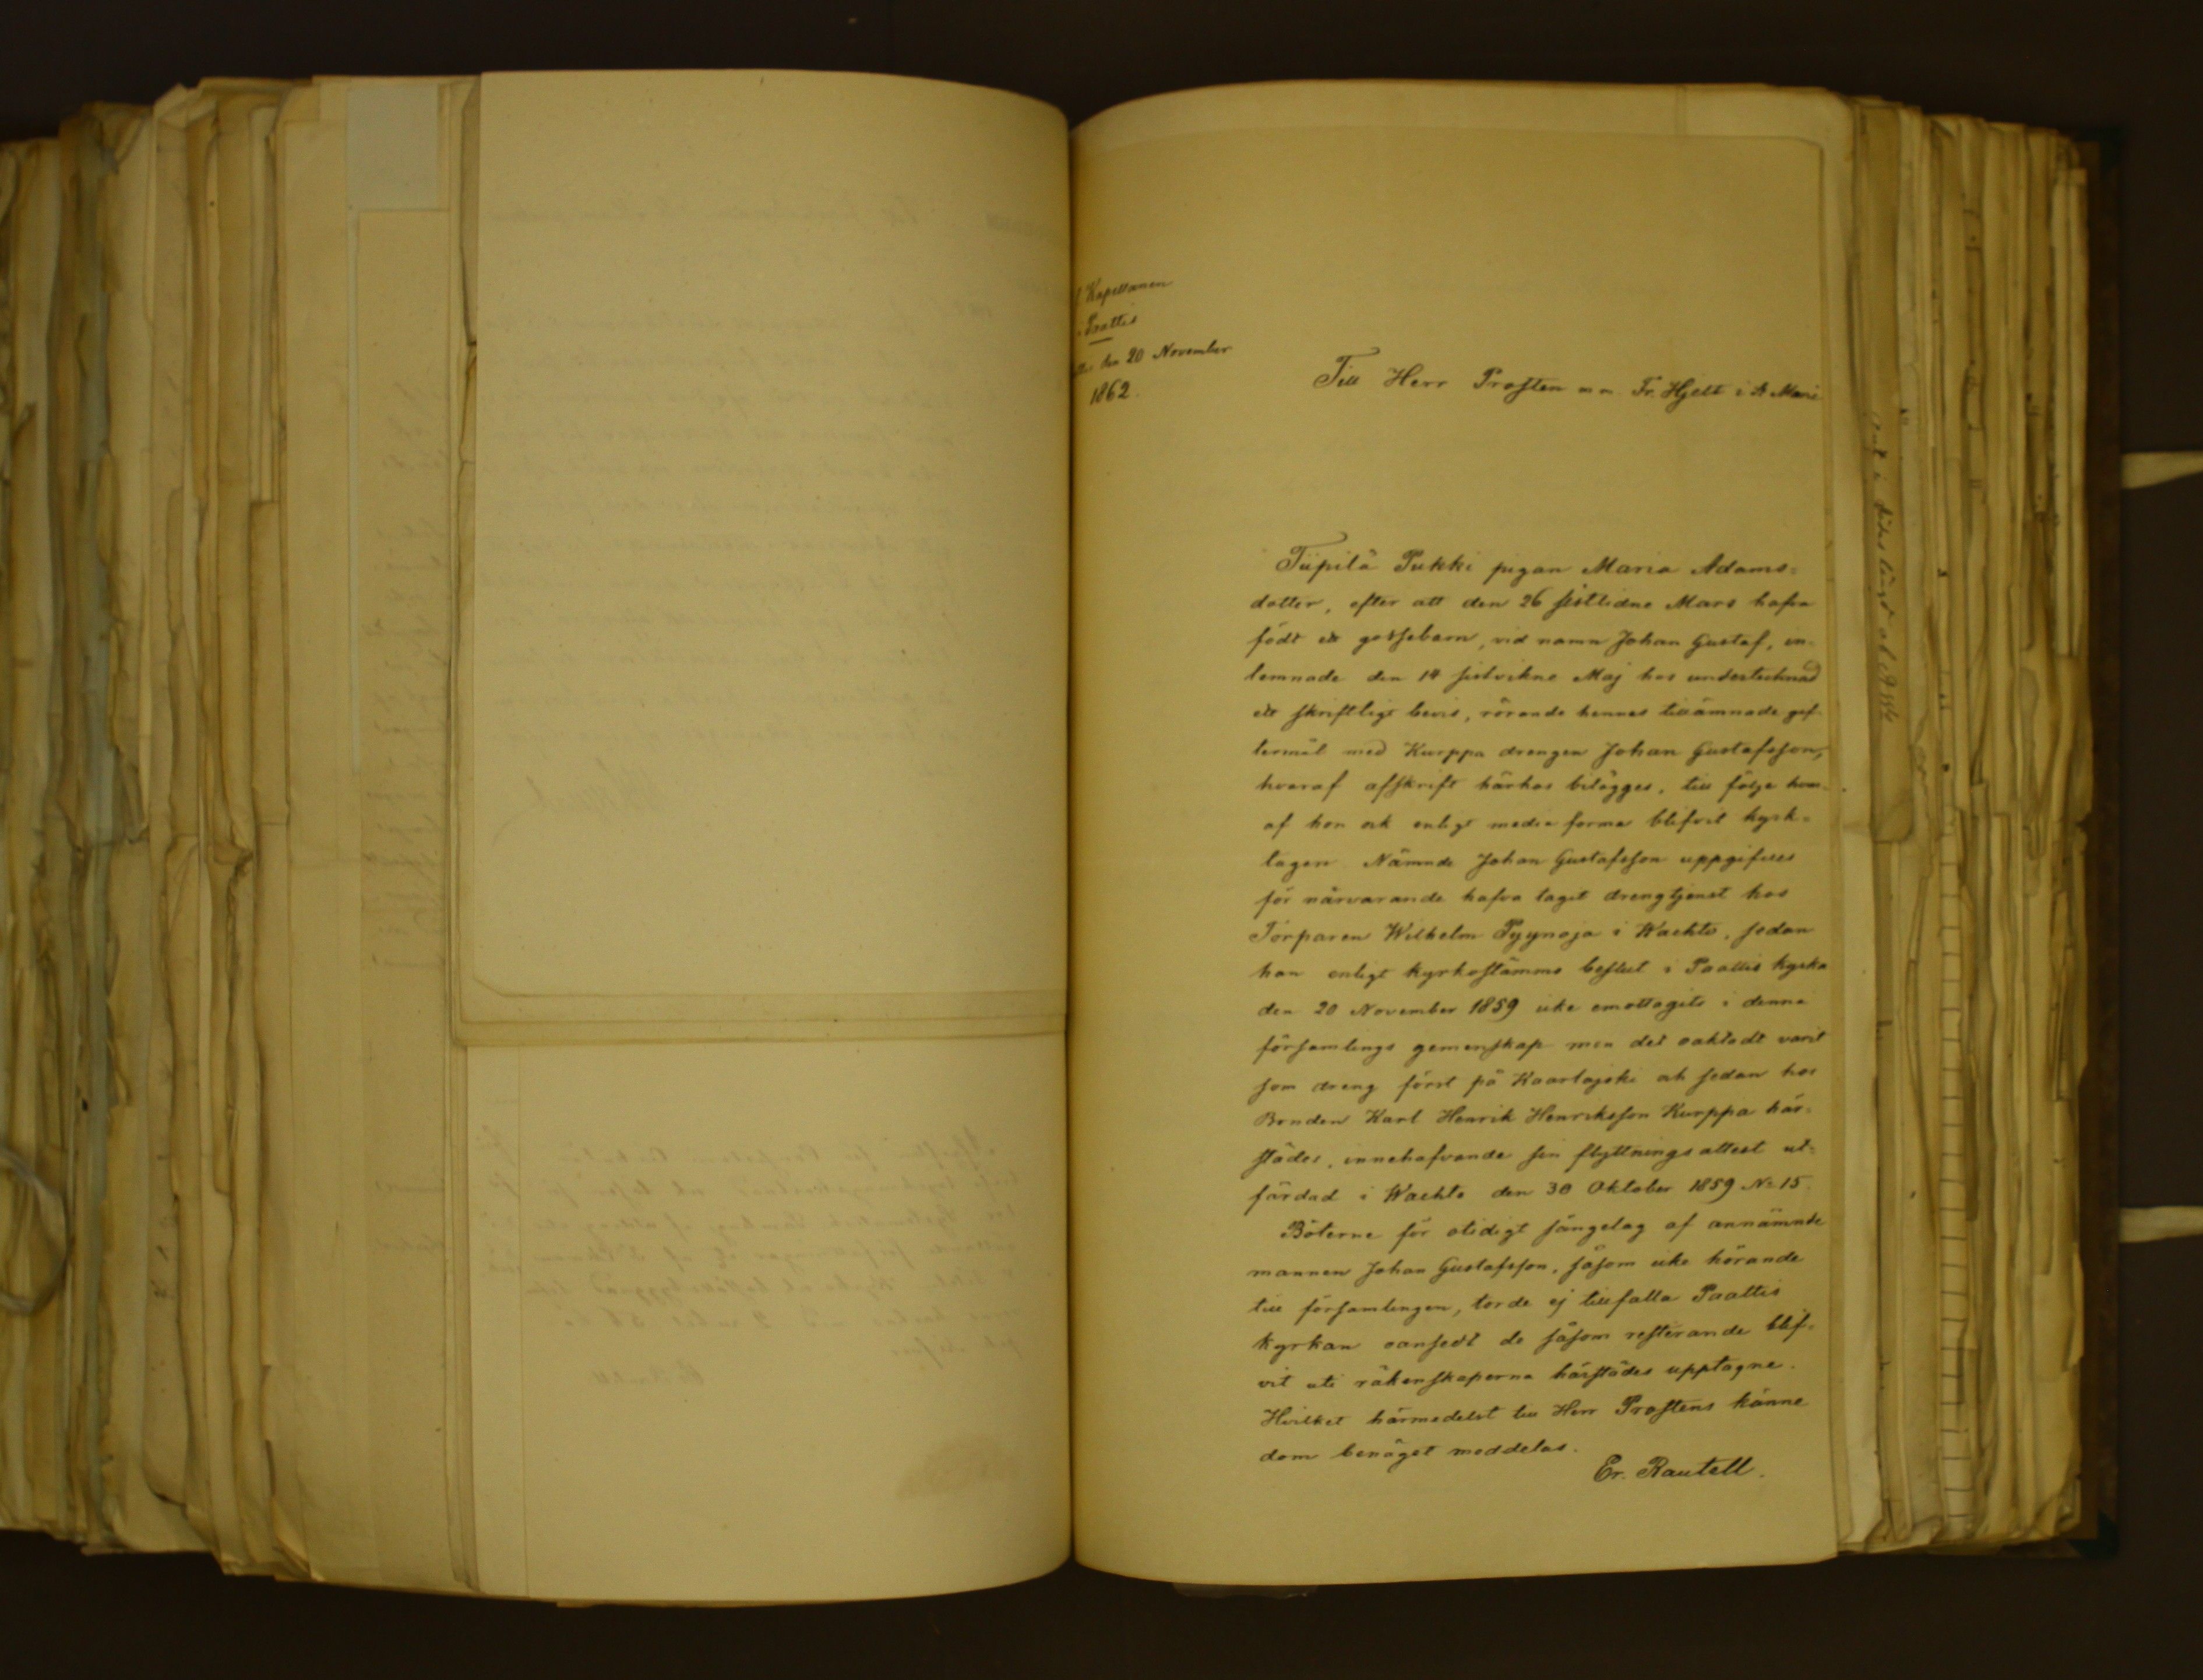 Kapellanen
Paattis
den 20 November
1862.
Till Herr Prosten m m Fr. Hjelt i St Marie
Tiipilä Pukki pigan Maria Adams=
dotter, efter att den 26 sistlidne Mars hafva
födt ett gossebarn, vid namn Johan Gustaf, in-
lemnade den 14 sistvikne Maj hos undertecknad
ett skriftligt bevis, rörande hennes tillämnade gif-
termål med Kurppa drengen Johan Gustafsson,
hvaraf afskrift härhos bilägges, till följe hvar-
af hon ock enligt media forma blifvit kyrk-
tagen. Nämnde Johan Gustafsson uppgifves
för närvarande hafva tagit drengtjenst hos
Torparen Wilhelm Pyynoja i Wachto, sedan
han enligt kyrkostämmo beslut i Paattis kyrka
den 20 November 1859 icke emottagits i denna
församlings gemenskap men det oaktadt varit
som dreng först på Kaarlajoki och sedan hos
Bonden Karl Henrik Henriksson Kurppa här-
städes, innehafvande sin flyttningsattest ut-
färdad i Wachto den 30 Oktober 1859 No 15.
Böterne för otidigt sängelag af annämnde
mannen Johan Gustafsson, såsom icke hörande
till församlingen, torde ej tillfalla Paattis
kyrkan oansedt de såsom resterande blif-
vit uti räkenskaperna härstädes upptagne.
Hvilket härmedelst till Herr Prostens känne
dom benäget meddelas.
Er. Rautell.